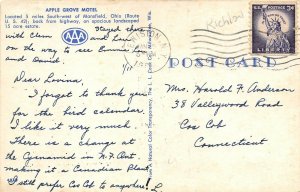 APPLE GROVE MOTEL
Located 5 miles South-west of Mansfield, Ohio (Route
U. S. 42); back from highway, on spacious landscaped
15 acre estate.
Stayed there
with Clem and Lou
on the way to see Bonnie Lou
and David.
AAA
Dear Lovina,
I forgot to thank you
for the bird calendar.
I like it very much.
There is a change at
the Cyanamid in N.F. Ont.
making it a Canadian Plant.
I still prefer Cos Cob to anywhere!
Natural Color Transparency. The L. L. Cook Co., Milwaukee, Wis.
POST CARD
3¢
LIBERTY
Mrs. Harold F. Anderson
38 Valleywood Road
Cos Cob
Connecticut